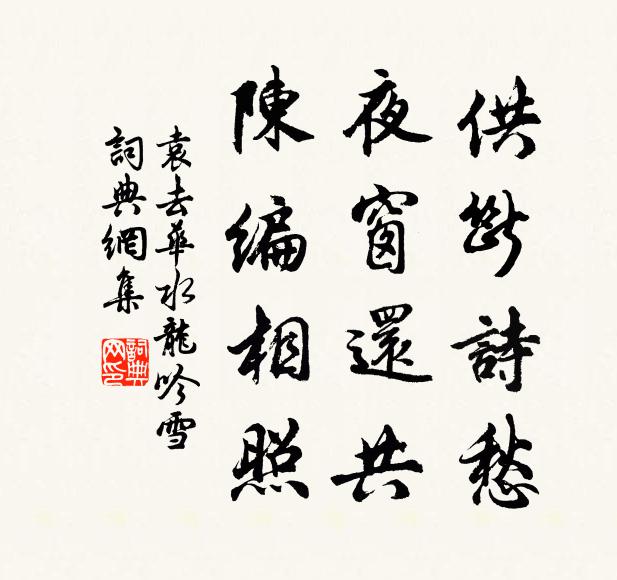 供斷詩愁
夜窗還共
陳編相照
袁去華水龍吟雪
詞典網集
詞典
网印